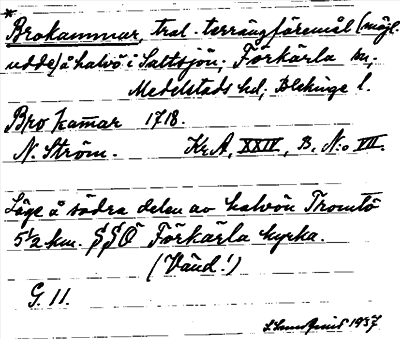 *
Brokammar, tral. terrängföremål (möjl.
udde) å halvö i Saltsjön; Förkärla sn,
Medelstads hd; Blekinge l.
Bro kam̄ar 1718.
N. Ström. Kr.A, XXIV, B, N:o VII.
Läge å södra delen av halvön Tromtö
5½ km. SSÖ Förkärla kyrka.
(Vänd!)
G. 11.
1937